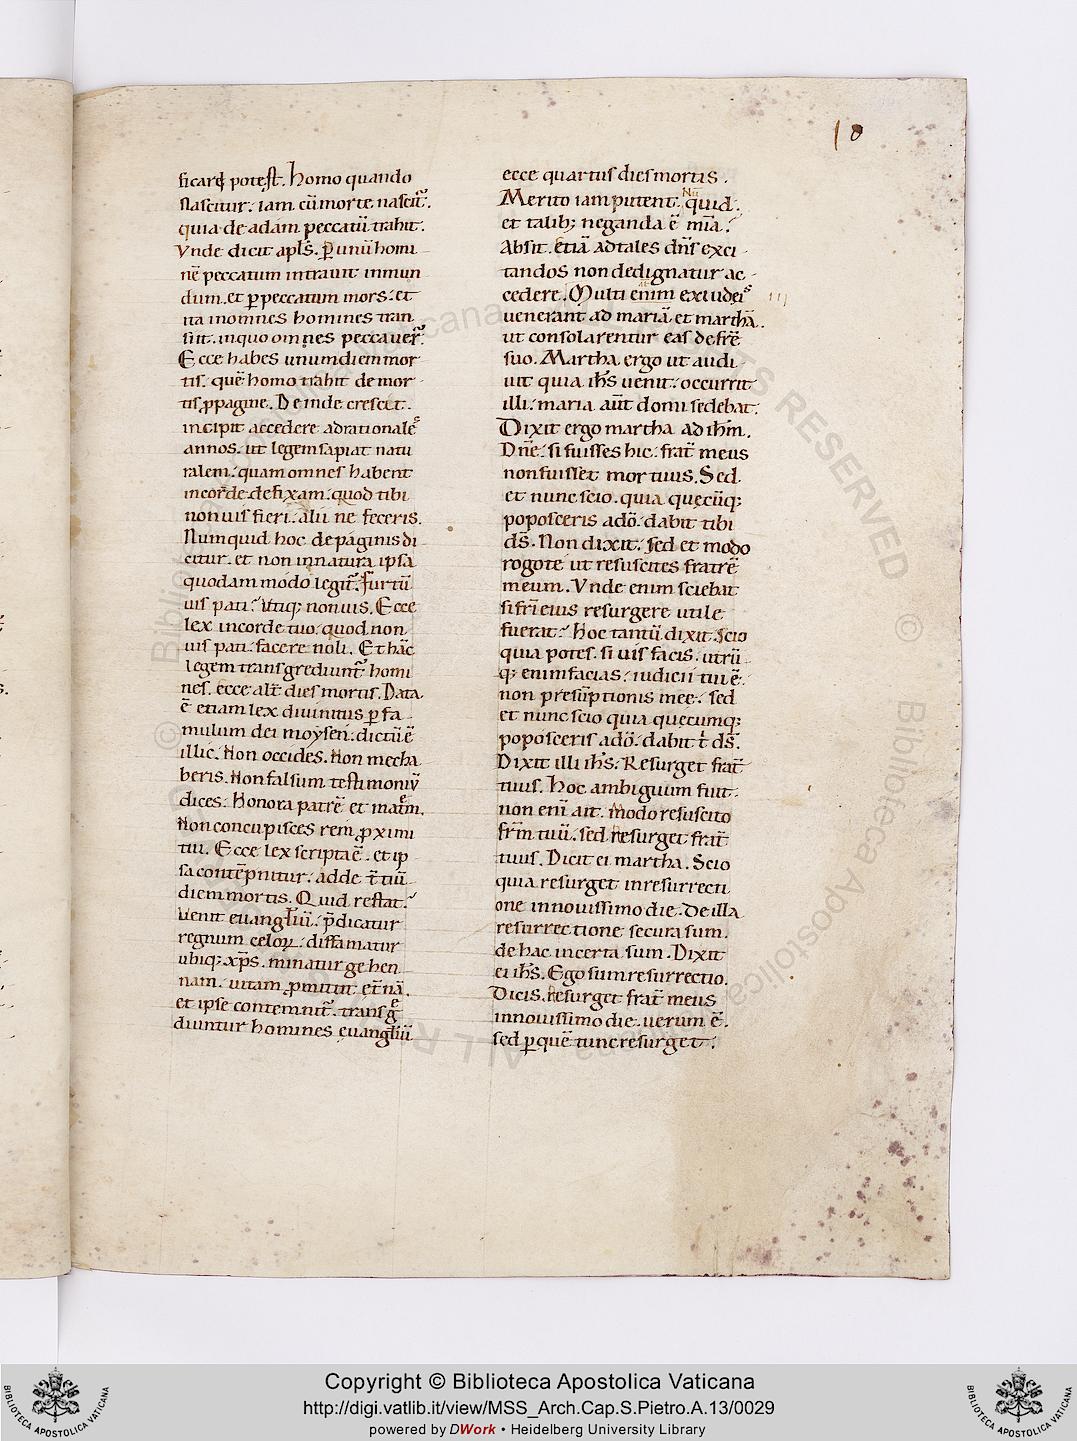 10
ficarẹ potest. homo quando
nascitur. iam cū morte nascit᷑.
quia de adam peccatū trahit.
Vnde dicit apl̄s. ꝑ unū homi
nē peccatum intrauit in mun
dum. et ꝑ peccatum mors. et
ita in omnes homines tran
siit. in quo omnes peccauer̄.
Ecce habes unum diem mor
tis. quē homo trahit de mor
tis ꝓpagine. Deinde crescit.
incipit accedere ad rationalēs
annos. ut legem sapiat natu
ralem. quam omnes habent
in corde defixam. quod tibi
non uis fieri. alii ne feceris.
Numquid hoc de paginis di
citur. et non in natura ipsa
quodam modo legit᷑. furtū
uis pati. Vtiq; non uis. Ecce
lex in corde tuo. quod non
uis pati. facere noli. Et hāc
legem transgrediunt᷑ homi
nes. ecce alt̄ dies mortis. Data
ē etiam lex diuinitus ꝑ fa
mulum dei moysen. dictū ē
illic. Non occides. Non mecha
beris. Non falsum testimoniū
dices. Honora patrē et matrēm.
Non concupisces rem ꝓximi
tui. Ecce lex scripta ē. et ip
sa contēpnitur. adde t̄tiū
diem mortis. Quid restat.
Venit euangl̄iū. p̄dicatur
regnum celoꝝ. diffamatur
ubiq; xp̄s. minatur gehen
nam. uitam ꝓmittit et̄nā.
et ipse contemnit᷑. transg̃
diuntur homines euangl̄iū
ecce quartus dies mortis.
Merito iam putent. Nū quid.
et talib; neganda ē mīa.
Absit. Etiā ad tales dn̄s exci
tandos non dedignatur ac
cedere. Multi enim ex iudeis
uenerant ad mariā et marthā.
ut consolarentur eas de fr̄e
suo. Martha ergo ut audi
uit quia ih̄s uenit. occurrit
illi. maria aūt domi sedebat.
Dixit ergo martha ad ih̄m.
Dn̄e. si fuisses hic. frat̄ meus
non fuisset mortuus. Sed
et nunc scio. quia quecūq;
poposceris a dō. dabit tibi
ds̄. Non dixit. sed et modo
rogo te ut resuscites fratrē
meum. Vnde enim sciebat
si fr̄i eius resurgere utile
fuerat. Hoc tantū dixit. scio
quia potes. si uis facis. utrū
q; enim facias. iudicii tui ē.
non presūptionis mee. sed
et nunc scio quia quecumq;
poposceris a dō. dabit t̄ ds̄.
Dixit illi ih̄s. Resurget frat̄
tuus. Hoc ambiguum fuit.
non enī ait. modo resuscito
fr̄m tuū. sed resurget frat̄
tuus. Dicit ei martha. Scio
quia resurget in resurrecti
one in nouissimo die. De illa
resurrectione secura sum.
de hac incerta sum. Dixit
ei ih̄s. Ego sum resurrectio.
Dicis. Resurget frat̄ meus
in nouissimo die. uerum ē.
sed ꝑ quē tunc resurget.
Copyright © Biblioteca Apostolica Vaticana
http://digi.vatlib.it/view/MSS_Arch.Cap.S.Pietro.A.13/0029
powered by DWork • Heidelberg University Library